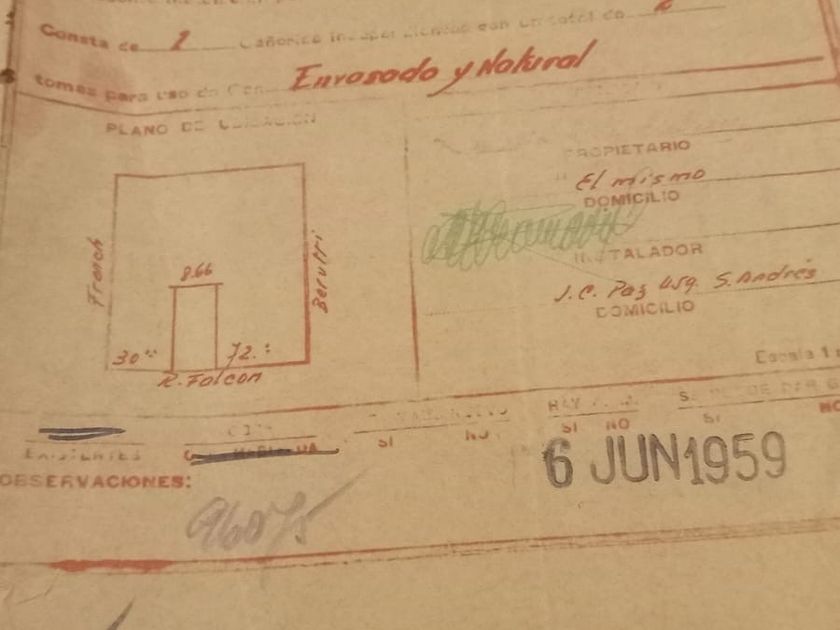 Consta de 1 Cañerias independientes con un total de 2
tomas para uso de Gas Envasado y Natural
PLANO DE UBICACION
French
8.66
Berutti
30.
72.
R. Falcon
PROPIETARIO
El mismo
DOMICILIO
INSTALADOR
J.C. Paz esq. S. Andrés
DOMICILIO
Escala 1
EXISTENTES
SI NO
HAY
SI NO
SI NO
OBSERVACIONES:
6 JUN 1959
96075